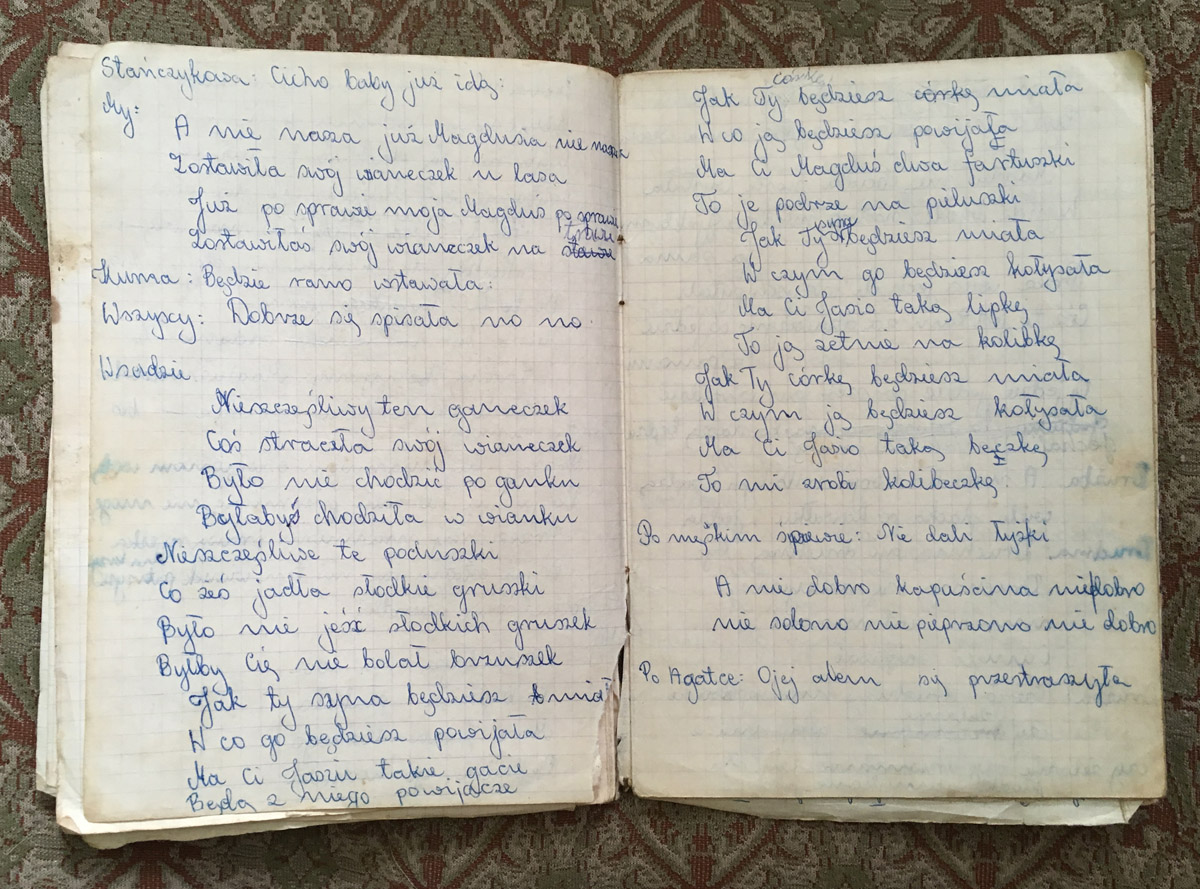 Stańczykowa: Cicho baby już idą:
My:
A nie nasza już Magdusia nie nasza
Zostawiła swój wianeczek u lasa
Już po sprawie moja Magduś po sprawie
Zostawiłaś swój wianeczek na stawie
Kuma: Będzie rano wstawała:
Wszyscy: Dobrze się spisała no no.
Wsadzie
Nieszczęśliwy ten ganeczek
Coś straceła swój wianeczek
Było nie chodzić po ganku
Bęłabyś chodziła w wianku
Nieszczęśliwe te poduszki
Co żeś jadła słodkie gruszki
Było nie jeść słodkich gruszek
Byłby Cię nie bolał brzuszek
Jak ty syna będziesz miał
W co go będziesz powijała
Ma Ci Jasiu takie gacie
Będą z niego powijacze
córke
Jak Ty będziesz córkę miała
W co ją będziesz powijała
Ma Ci Magduś dwa fartuszki
To je podrze na pieluszki
syna
Jak Ty będziesz miała
W czym go będziesz kołysała
Ma Ci Jasio taką lipkę
To ją zetnie na kolibkę
Jak Ty córkę będziesz miała
W czym ją będziesz kołysała
Ma Ci Jasio taką bęczkę
To mi zrobi kolibeczkę
Po męskim śpiewie: Nie dali łyżki
A nie dobro kapuścina niedobro
nie solono nie pieprzono nie dobro
Po Agatce: Ojej alem się przestraszyła